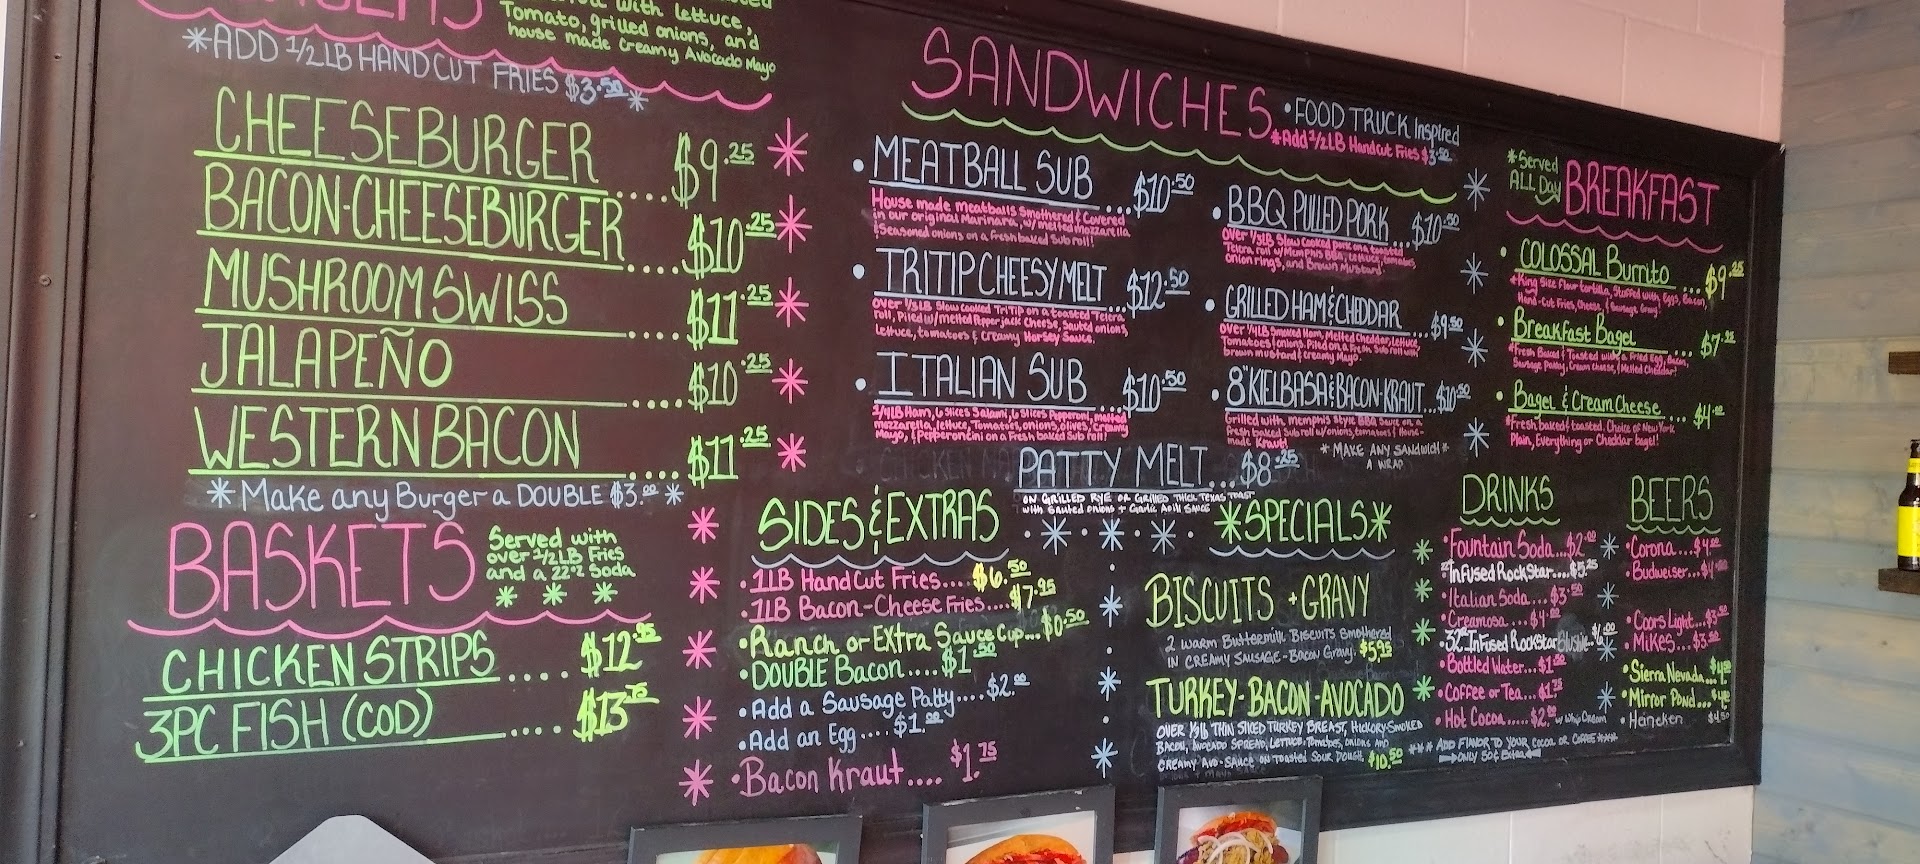 with Lettuce,
Tomato, grilled onions, and
house made Creamy Avocado Mayo
*ADD 1/2LB HAND CUT FRIES $3.50*
CHEESEBURGER....$9.25
BACON-CHEESEBURGER....$10.25
MUSHROOM SWISS....$11.25
JALAPEÑO....$10.25
WESTERN BACON....$11.25
*Make any Burger a DOUBLE $3.00*
BASKETS
Served with
over 1/2LB Fries
and a 22oz Soda
CHICKEN STRIPS....$12.95
3PC FISH (COD)....$13.75
SANDWICHES
•FOOD TRUCK Inspired
*Add 1/2LB Handcut Fries $3.50
•MEATBALL SUB...$10.50
House made meatballs Smothered & Covered
in our original Marinara, w/ melted mozzarella
& Seasoned onions on a fresh baked Sub roll!
•TRITIP CHEESY MELT...$12.50
Over 1/3LB Slow Cooked TriTip on a toasted Telera
roll, Piled w/ melted Pepperjack Cheese, Sauted onions,
Lettuce, tomatoes & Creamy Horsey Sauce.
•ITALIAN SUB...$10.50
1/4LB Ham, 6 Slices Salami, 6 Slices Pepperoni, melted
mozzarella, lettuce, Tomatoes, onions, olives, Creamy
Mayo, & Pepperoncini on a Fresh baked Sub roll!
•BBQ PULLED PORK...$10.50
Over 1/3LB Slow Cooked pork on a toasted
Telera roll w/ Memphis BBQ, Lettuce, tomatoes,
onion rings, and Brown Mustard.
•GRILLED HAM & CHEDDAR...$9.50
Over 1/4LB Smoked Ham, Melted Cheddar, Lettuce
Tomatoes & onions. Piled on a Fresh Sub roll with
brown mustard & creamy Mayo.
•8" KIELBASA & BACON-KRAUT...$10.50
Grilled with Memphis Style BBQ Sauce on a
Fresh baked Sub roll w/ onions, tomatoes & House-
made Kraut!
*MAKE ANY SANDWICH*
A WRAP
PATTY MELT...$8.25
ON GRILLED RYE OR GRILLED THICK TEXAS TOAST
with Sauted onions + Garlic Aoili SAUCE
*Served
ALL Day
BREAKFAST
•COLOSSAL Burrito...$9.25
*King Size flour tortilla, Stuffed with, Eggs, Bacon,
Hand-Cut Fries, Cheese, & Sausage Gravy!
•Breakfast Bagel...$7.95
*Fresh Baked & Toasted with a Fried Egg, Bacon,
Sausage Patty, Cream Cheese, & Melted Cheddar!
•Bagel & Cream Cheese...$4.00
*Fresh baked & toasted. Choice of New York
Plain, Everything or Cheddar bagel!
SIDES & EXTRAS
•1LB Hand Cut Fries....$6.50
•1LB Bacon-Cheese Fries....$7.95
•Ranch or Extra Sauce Cup...$0.50
•DOUBLE Bacon....$1.50
•Add a Sausage Patty....$2.00
•Add an Egg....$1.00
•Bacon Kraut....$1.75
*SPECIALS*
BISCUITS + GRAVY
2 warm Buttermilk BISCUITS Smothered
IN CREAMY SAUSAGE-BACON Gravy. $5.95
TURKEY-BACON-AVOCADO
OVER 1/3LB THIN SLICED TURKEY BREAST, HICKORY-SMOKED
BACON, AVOCADO SPREAD, LETTUCE, TOMATOES, ONIONS AND
CREAMY AVO-SAUCE ON TOASTED SOUR DOUGH. $10.50
DRINKS
•Fountain Soda...$2.00
InFused RockStar....$5.25
•Italian Soda...$3.50
•Creamosa...$4.00
32oz InFused Rockstar Slushie
•Bottled Water...$1.50
•Coffee or Tea...$1.75
•Hot Cocoa....$2.50 w/ Whip Cream
*** ADD FLAVOR TO YOUR COCOA OR COFFEE ***
ONLY 50¢ Extra
BEERS
•Corona....$4.00
•Budweiser...$4
•Coors Light...$3.50
•MiKES...$3.50
•Sierra Nevada...$4.50
•Mirror Pond...
•Heineken $4.50